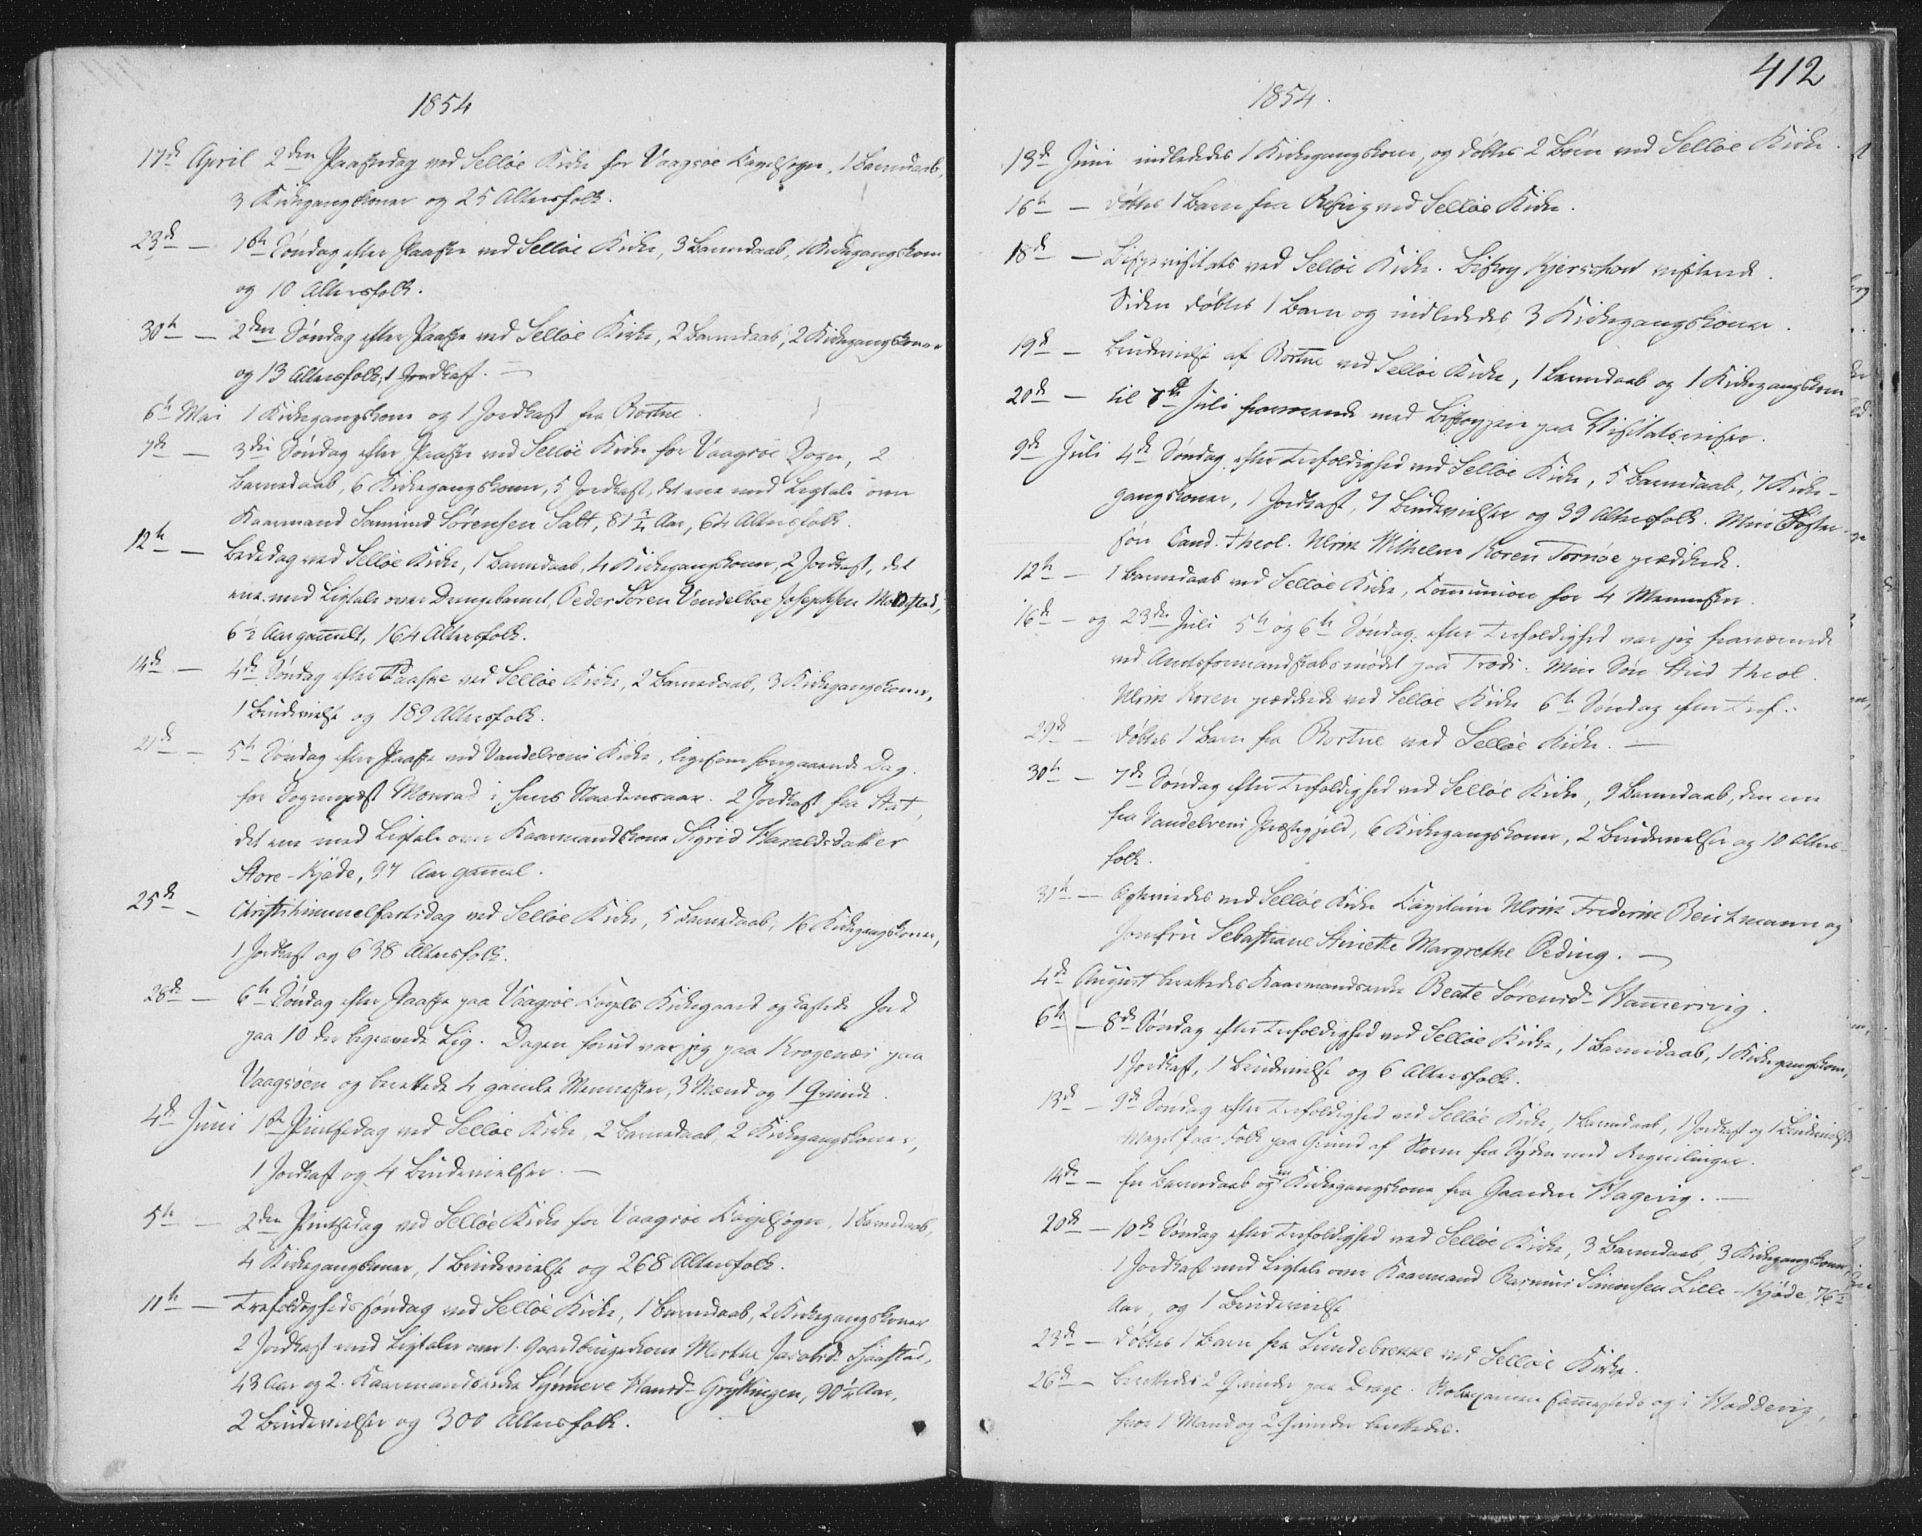 1854
17de April 2den Paaskedag ved Selløe Kirke for Vaagsøe Capelsogn, 1 Barnedaab,
3 Kirkegangskoner og 25 Altersfolk.
23de — 1ste Søndag efter Paaske ved Selløe Kirke, 3 Barnedaab, 1 Kirkegangskone
og 10 Altersfolk.
30te — 2den Søndag efter Paaske ved Selløe Kirke, 2 Barnedaab, 2 Kirkegangskoner
og 13 Altersfolk, 1 Jordkast. —
6te Mai 1 Kirkegangskone og 1 Jordkast fra Rortne.
7de — 3die Søndag efter Paaske ved Selløe Kirke for Vaagsøe Sogn, 2
Barnedaab, 6 Kirkegangskoner, 5 Jordkast, det ene med Ligtale over
Kaarmand Samund Sørensen Salt, 81 3/4 Aar, 64 Altersfolk.
12te — Bededag ved Selløe Kirke, 1 Barnedaab, 4 Kirkegangskoner, 2 Jordkast, det
ene med Ligtale over Drengebarnet, Peder Søren Vendelboe Josephsen
6 1/2 Aar gam̄elt, 164 Altersfolk.
14de — 4de Søndag efter Paaske ved Selløe Kirke, 2 Barnedaab, 3 Kirkegangskoner,
1 Brudevielse og 189 Altersfolk.
21de — 5te Søndag efter Paaske ved Vandelveens Kirke, ligesom foregaaende Dag
for Sognepræst Monrad i hans Naadensaar. 2 Jordkast fra Stat,
det ene med Ligtale over Kaarmandskone Sigrid Haraldsdatter
Store-Kjøde, 97 Aar gam̄el.
25de — Christihimmelfartsdag ved Selløe Kirke, 5 Barnedaab, 16 Kirkegangskoner,
1 Jordkast og 638 Altersfolk.
28de — 6te Søndag efter Paaske paa Vaagsøe Capels Kirkegaard og kastede Jord
paa 10 der begravede Lig. Dagen forud var jeg paa Krogenæs paa
Vaagsøen og berettede 4 gamle Mennesker, 3 Mænd og 1 Qvinde.
4de Juni 1ste Pintsedag ved Selløe Kirke, 2 Barnedaab, 2 Kirkegangskoner,
1 Jordkast og 4 Brudevielser. —
5te — 2den Pintsedag ved Selløe Kirke for Vaagsøe Capelsogn, 1 Barnedaab,
4 Kirkegangskoner, 1 Brudevielse og 268 Altersfolk.
11te — Trefoldighedssøndag ved Selløe Kirke, 1 Barnedaab, 2 Kirkegangskoner
2 Jordkast med Ligtaler over 1. Gaardbrugerkone Marthe Jacobsd.
43 Aar og 2. Kaarmandsenke Synneve Hansd. Gryttingen, 90 1/2 Aar,
2 Brudevielser og 300 Altersfolk.
412
1854.
13de Juni indlededes 1 Kirkegangskone, og døbtes 2 Børn ved Selløe Kirke.
16te — døbtes 1 Barn fra ved Selløe Kirke.
18de — Bispevisitats ved Selløe Kirke. Biskop Kjerschow visiterede.
Siden døbtes 1 Barn og indlededes 3 Kirkegangskoner.
19de — Brudevielse af Rortne ved Selløe Kirke, 1 Barnedaab og 1 Kirkegangskone
20de — til 7de Juli fraværende med Biskoppen paa Visitatsreiser.
9de Juli 4de Søndag efter Trefoldighed ved Selløe Kirke, 5 Barnedaab, 7 Kirke-
gangskoner, 1 Jordkast, 7 Brudevielser og 39 Altersfolk. Min Foster-
søn Cand. theol. Ulrik Wilhelm Koren Tornøe prædikede.
12te — 1 Barnedaab ved Selløe Kirke, Communion for 4 Mennesker.
16de — og 23de Juli 5te og 6te Søndag efter Trefoldighed var jeg fraværende
ved Amtsformandskabsmødet paa . Min Søn Stud theol.
Ulrik Koren prædikede ved Selløe Kirke 6te Søndag efter Tref.:
29de — døbtes 1 Barn fra Rortne ved Selløe Kirke. —
30te — 7de Søndag efter Trefoldighed ved Selløe Kirke, 9 Barnedaab, den ene
fra Vandelvens Præstegjeld, 6 Kirkegangskoner, 2 Brudevielser og 10 Alters-
folk.
31te — Egteviedes ved Selløe Kirke Capitain Ulrik Frederik Breichmann og
Jomfru Sebastiane Ainette Margrethe Oeding. —
4de August berettedes Kaarmandsenke Beate Sørensd. Ham̄ersvig.
6te — 8de Søndag efter Trefoldighed ved Selløe Kirke, 1 Barnedaab, 1 Kirkegangskone,
1 Jordkast, 1 Brudevielse og 6 Altersfolk.
13de — 9de Søndag efter Trefoldighed ved Selløe Kirke, 1 Barnedaab, 1 Jordkast og 1 Brudevielse
Meget faa Folk paa Grund af Storm fra Syden med Regnbyger.
14de — En Barnedaab og en Kirkegangskone fra Gaarden Hagevig. —
20de — 10de Søndag efter Trefoldighed ved Selløe Kirke, 3 Barnedaab, 3 Kirkegangskoner,
1 Jordkast med Ligtale over Kaarmand Rasmus Simonsen Lille-Kjøde, 76 1/2
Aar, og 1 Brudevielse
23de — døbtes 1 Barn fra Lundebrekke ved Selløe Kirke.
26de — Berettedes 2 Qvinder paa Drage. og i Haddevig,
hvor 1 Mand og 2 Qvinder berettedes.